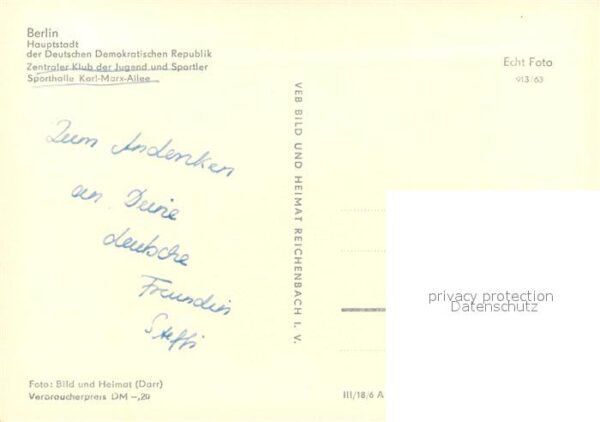 Berlin
Hauptstadt
der Deutschen Demokratischen Republik
Zentraler Klub der Jugend und Sportler
Sporthalle Karl-Marx-Allee
Echt Foto
913/63
VEB BILD UND HEIMAT REICHENBACH I. V.
Zum Andenken
an Deine
deutsche
Freundin
Steffi
privacy protection
Datenschutz
Foto: Bild und Heimat (Darr)
Verbraucherpreis DM -,20
III/18/6 A